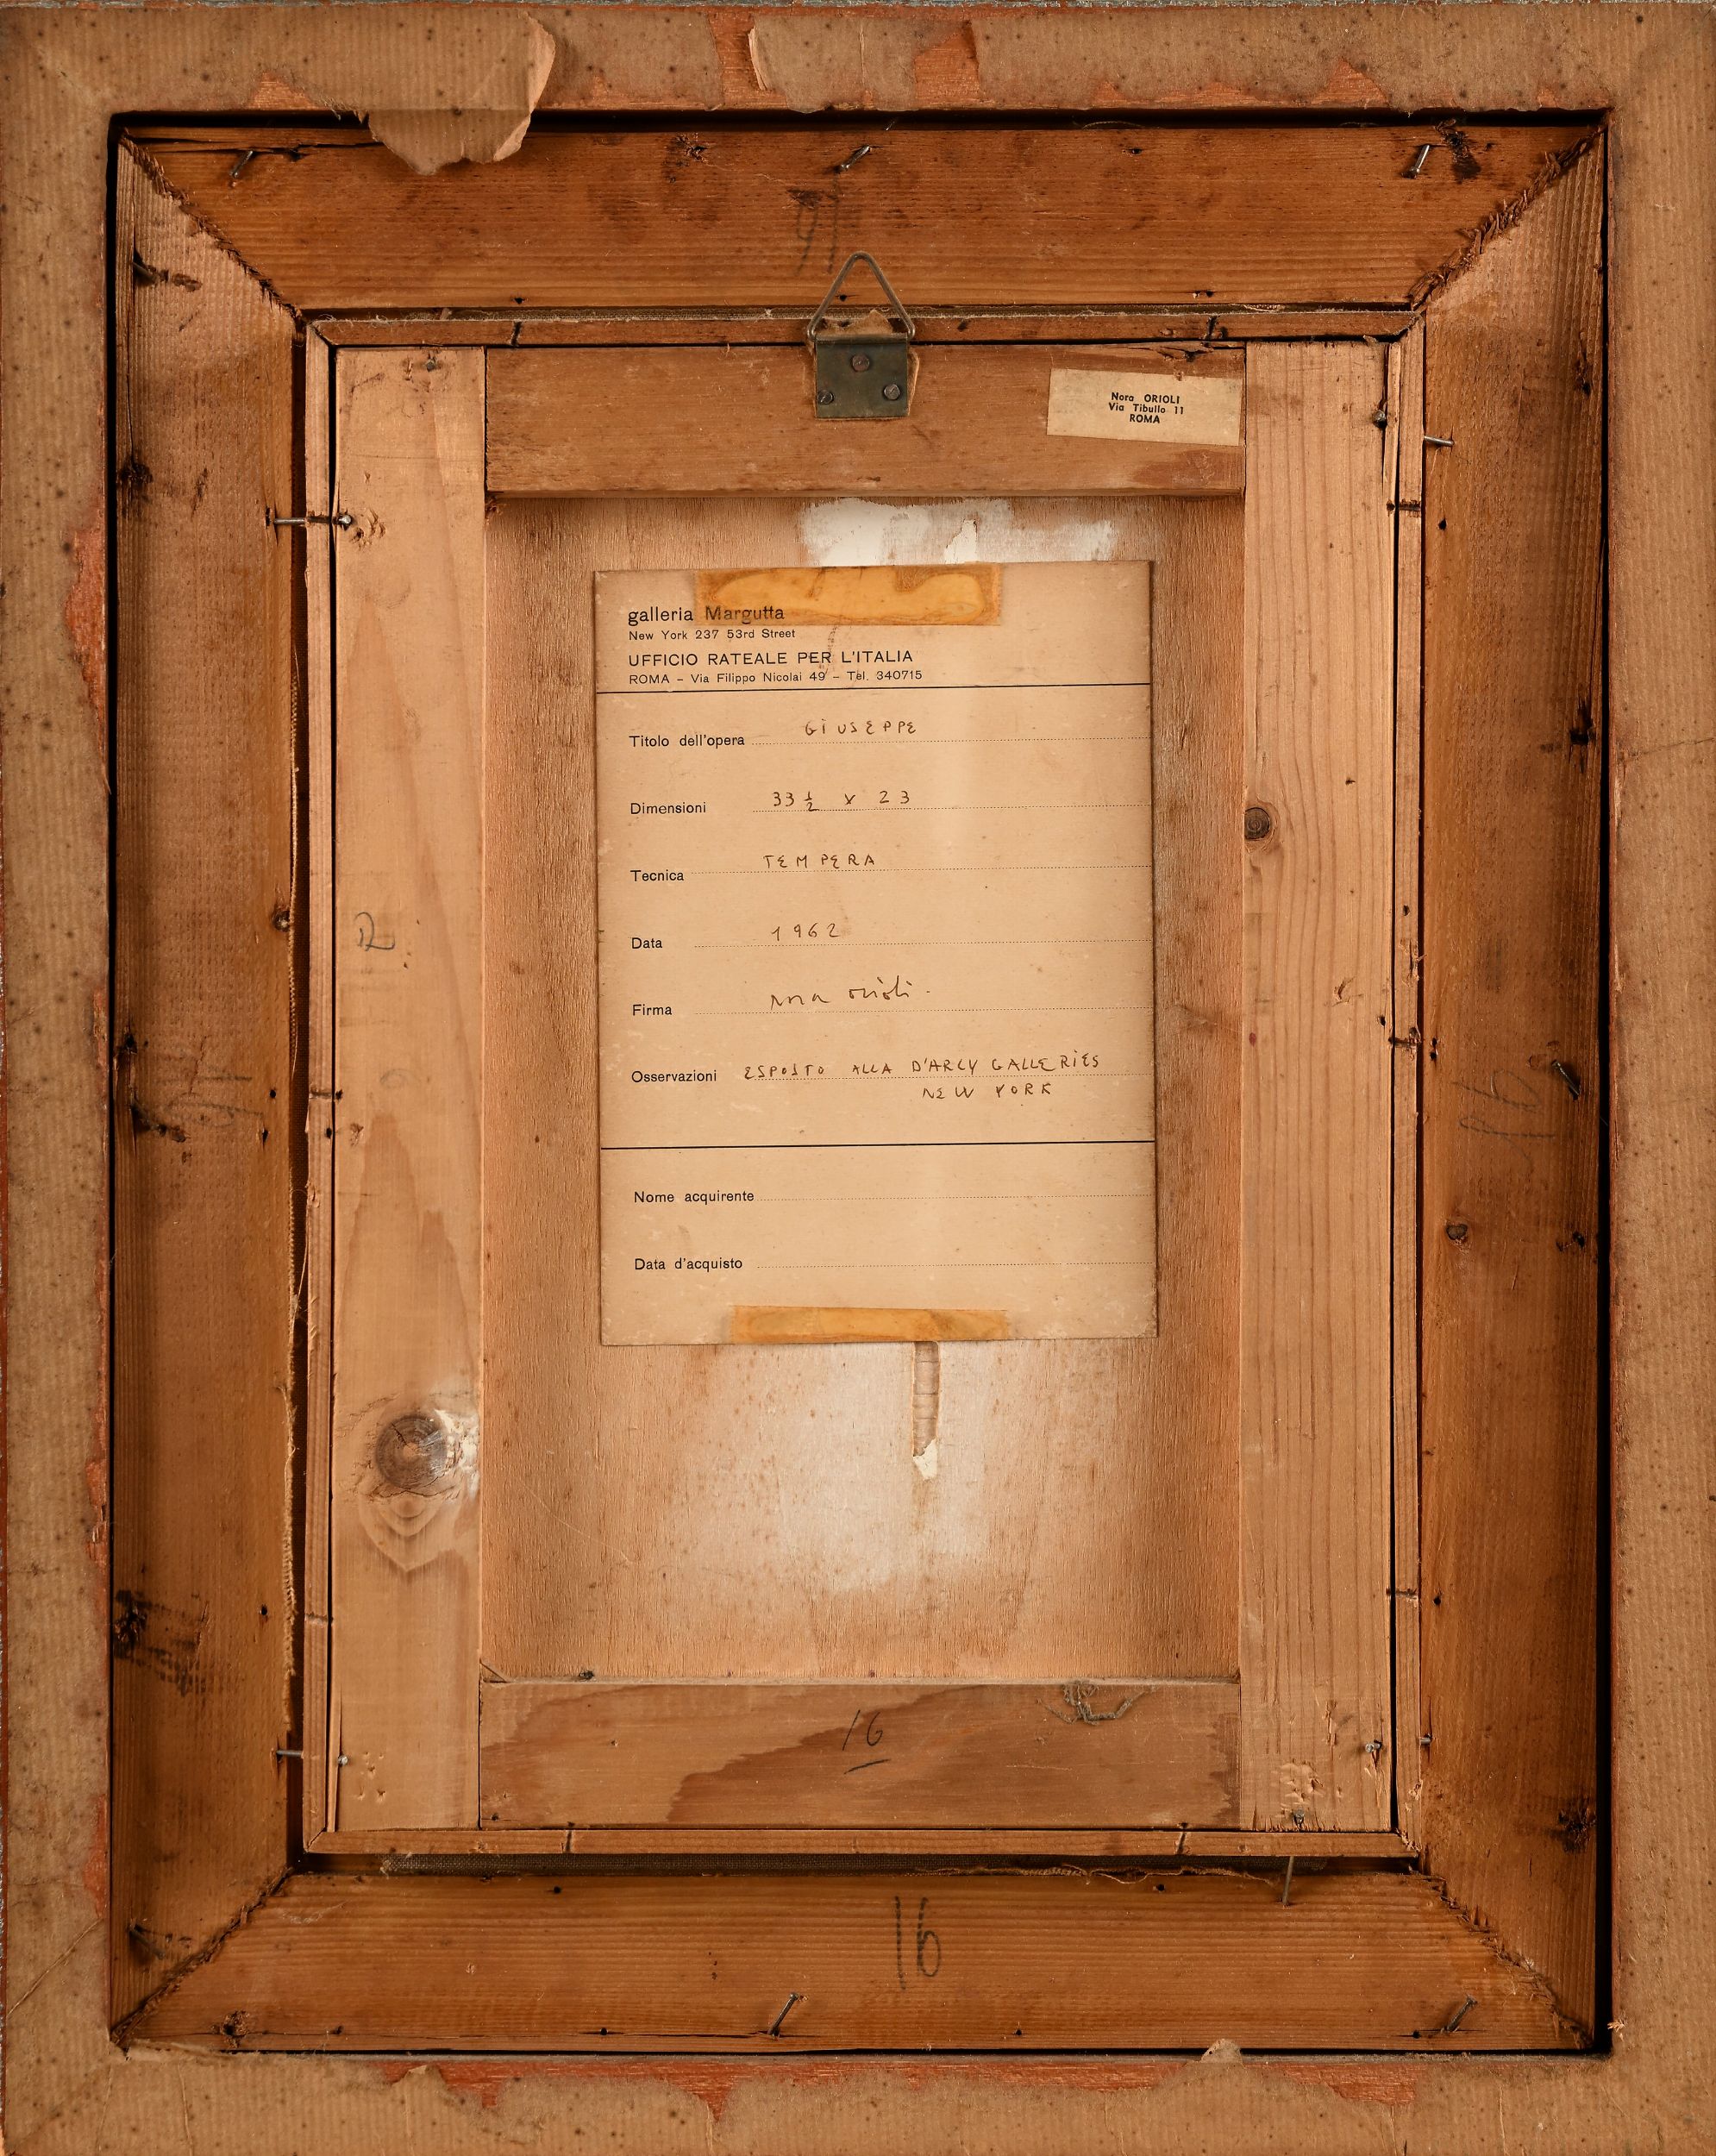 16
Nora ORIOLI
Via Tibullo 11
ROMA
galleria Margutta
New York 237 53rd Street
UFFICIO RATEALE PER L'ITALIA
ROMA - Via Filippo Nicolai 49 - Tel. 340715
Titolo dell'opera GIUSEPPE
Dimensioni 33 ½ x 23
Tecnica TEMPERA
Data 1962
Firma nora orioli.
Osservazioni ESPOSTO ALLA D'ARCY GALLERIES
NEW YORK
Nome acquirente
Data d'acquisto
16
16